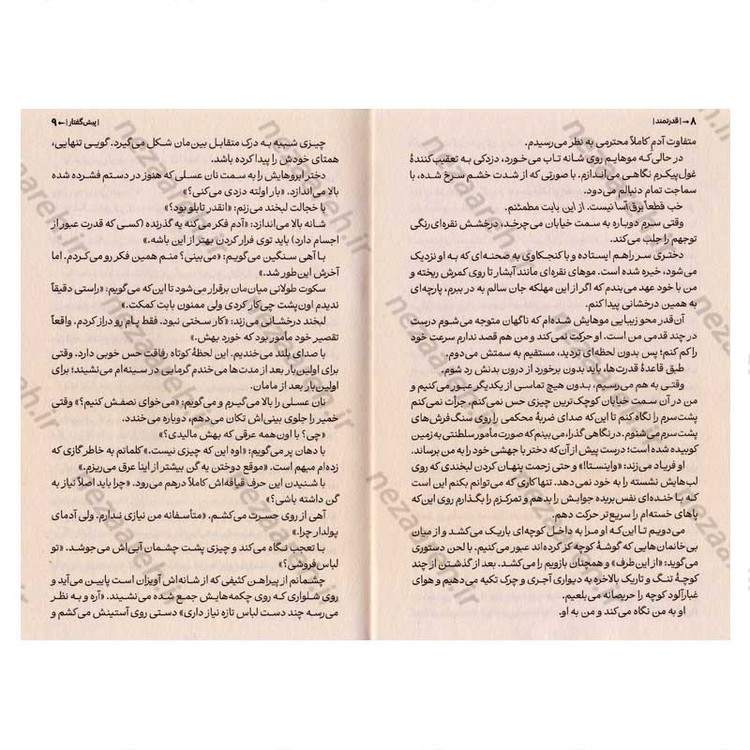 ۸ → | قدرتمند |
متفاوت آدم کاملاً محترمی به نظر می‌رسیدم.
در حالی‌که موهایم روی شانه تاب می‌خورد، دزدکی به تعقیب‌کنندهٔ
غول‌پیکرم نگاهی می‌اندازم. با صورتی که از شدت خشم سرخ شده، با
سماجت تمام دنبالم می‌دود.
خب قطعاً برق‌آسا نیست. از این بابت مطمئنم.
وقتی سرم دوباره به سمت خیابان می‌چرخد، درخشش نقره‌ای‌رنگی
توجهم را جلب می‌کند.
دختری سر راهم ایستاده و با کنجکاوی به صحنه‌ای که به او نزدیک
می‌شود، خیره شده است. موهای نقره‌ای مانند آبشار تا روی کمرش ریخته و
من با خود عهد می‌بندم که اگر از این مهلکه جان سالم به در ببرم، پارچه‌ای
به همین درخشانی پیدا کنم.
آن‌قدر محو زیبایی موهایش شده‌ام که ناگهان متوجه می‌شوم درست
در چند قدمی من است. او حرکت نمی‌کند و من هم قصد ندارم سرعت خود
را کم کنم؛ پس بدون لحظه‌ای تردید، مستقیم به سمتش می‌دوم.
طبق قاعدهٔ قدرت‌ها، باید بدون برخورد از درون بدنش رد شوم.
وقتی به هم می‌رسیم، بدون هیچ تماسی از یکدیگر عبور می‌کنیم و
من در آن سمت خیابان کوچک‌ترین چیزی حس نمی‌کنم. جرات نمی‌کنم
پشت سرم را نگاه کنم تا این‌که صدای ضربهٔ محکمی را روی سنگ‌فرش‌های
پشت سرم می‌شنوم. در نگاهی گذرا، می‌بینم که صورت مأمور سلطنتی به زمین
کوبیده شده است؛ درست پیش از آن‌که دختر با جهشی خود را به من برساند.
او فریاد می‌زند: «وایستا!» و حتی زحمت پنهان کردن لبخندی که روی
لب‌هایش نشسته را به خود نمی‌دهد. تنها کاری که می‌توانم بکنم این است
که با خنده‌ای نفس‌بریده جوابش را بدهم و تمرکزم را بگذارم روی این‌که
پاهای خسته‌ام را سریع‌تر حرکت دهم.
می‌دویم تا این‌که او مرا به داخل کوچه‌ای باریک می‌کشد و از میان
بی‌خانمان‌هایی که گوشهٔ کوچه کز کرده‌اند عبور می‌کنیم. با لحن دستوری
می‌گوید: «از این طرف» و همچنان بازویم را می‌کشد. بعد از گذشتن از چند
کوچهٔ تنگ و تاریک بالاخره به دیواری آجری و چرک تکیه می‌دهیم و هوای
غبارآلود کوچه را حریصانه می‌بلعیم.
او به من نگاه می‌کند و من به او.
| پیش‌گفتار | ← ۹
چیزی شبیه به درک متقابل بین‌مان شکل می‌گیرد. گویی تنهایی،
همتای خودش را پیدا کرده باشد.
دختر ابروهایش را به سمت نان عسلی که هنوز در دستم فشرده شده
بالا می‌اندازد. «بار اولته دزدی می‌کنی؟»
با خجالت لبخند می‌زنم: «انقدر تابلو بود؟»
شانه بالا می‌اندازد: «آدم فکر می‌کنه یه گذرنده (کسی که قدرت عبور از
اجسام دارد) باید توی فرار کردن بهتر از این باشه.»
با آهی سنگین می‌گویم: «می‌بینی؟ منم همین فکر رو می‌کردم. اما
آخرش این‌طور شد.»
سکوت طولانی میان‌مان برقرار می‌شود تا این‌که می‌گویم: «راستی دقیقاً
ندیدم اون‌پشت چی‌کار کردی ولی ممنون بابت کمکت.»
لبخند درخشانی می‌زند: «کار سختی نبود. فقط پام رو دراز کردم. واقعاً
تقصیر خود مأمور بود که خورد بهش.»
با صدای بلند می‌خندیم. این لحظهٔ کوتاه رفاقت حس خوبی دارد. وقتی
برای اولین‌بار بعد از مدت‌ها می‌خندم گرمایی در سینه‌ام می‌نشیند؛ برای
اولین‌بار بعد از مامان.
نان عسلی را بالا می‌گیرم و می‌گویم: «می‌خوای نصفش کنیم؟» وقتی
خمیر را جلوی بینی‌اش تکان می‌دهم، دوباره می‌خندد.
«چی؟ با اون‌همه عرقی که بهش مالیدی؟»
با دهان پر می‌گویم: «اوه این که چیزی نیست.» کلماتم به خاطر گازی که
زده‌ام مبهم است. «موقع دوختن یه گن بیشتر از اینا عرق می‌ریزم.»
با شنیدن این حرف قیافه‌اش کاملاً درهم می‌رود. «چرا باید اصلاً نیاز به
گن داشته باشی؟»
آهی از روی حسرت می‌کشم. «متأسفانه من نیازی ندارم. ولی آدمای
پولدار چرا.»
با تعجب نگاه می‌کند و چیزی پشت چشمان آبی‌اش می‌جوشد. «تو
لباس‌فروشی؟»
چشمانم از پیراهن کثیفی که از شانه‌اش آویزان است پایین می‌آید و
روی شلواری که روی چکمه‌هایش جمع شده می‌نشیند. «آره و به نظر
می‌رسه چند دست لباس تازه نیاز داری» دستی روی آستینش می‌کشم و
nezaareh.ir